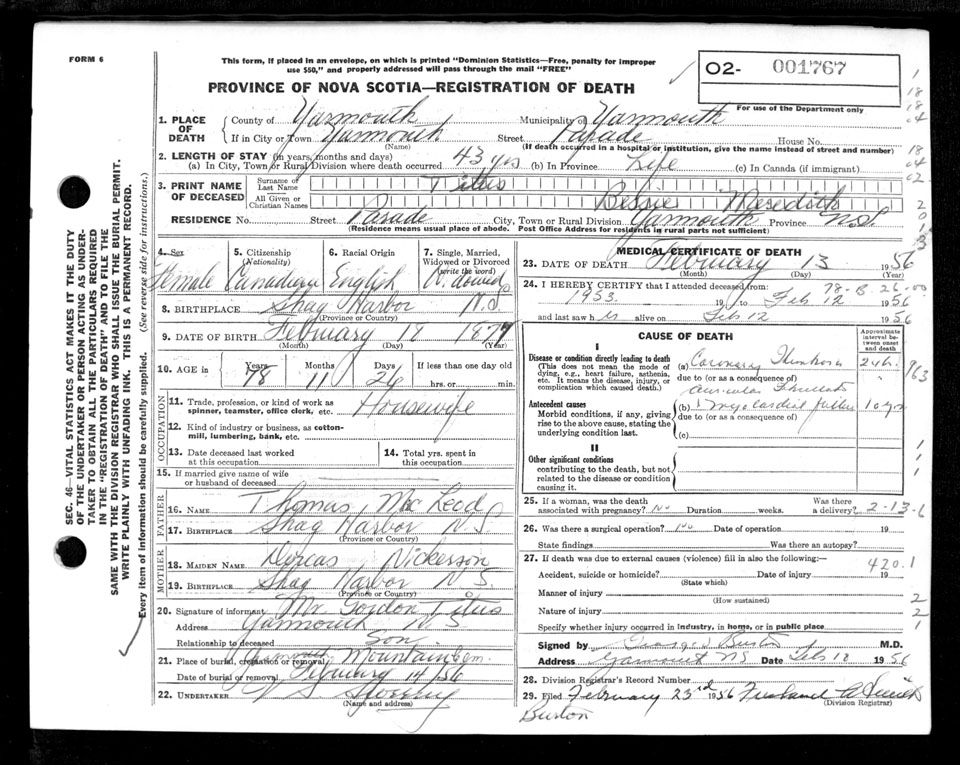 FORM 6
This form, if placed in an envelope, on which is printed "Dominion Statistics—Free, penalty for improper
use $50," and properly addressed will pass through the mail "FREE"
O2- 001767
For use of the Department only
PROVINCE OF NOVA SCOTIA—REGISTRATION OF DEATH
1. PLACE OF DEATH County of Yarmouth Municipality of Yarmouth
If in City or Town Yarmouth Street Parade House No.
(Name) (If death occurred in a hospital or institution, give the name instead of street and number)
2. LENGTH OF STAY (in years, months and days)
(a) In City, Town or Rural Division where death occurred 43 yrs (b) In Province Life (c) In Canada (if immigrant)
3. PRINT NAME OF DECEASED Surname or Last Name Titus
All Given or Christian Names Bessie Meredith
RESIDENCE No. Street Parade City, Town or Rural Division Yarmouth Province N.S.
(Residence means usual place of abode. Post Office Address for residents in rural parts not sufficient)
4. Sex Female
5. Citizenship (Nationality) Canadian
6. Racial Origin English
7. Single, Married, Widowed or Divorced (write the word) Widowed
8. BIRTHPLACE Shag Harbor N.S.
(Province or Country)
9. DATE OF BIRTH February 18 1877
(Month) (Day) (Year)
10. AGE in Years 78 Months 11 Days 26 If less than one day old
hrs. or min.
OCCUPATION
11. Trade, profession, or kind of work as
spinner, teamster, office clerk, etc. Housewife
12. Kind of industry or business, as cotton-
mill, lumbering, bank, etc.
13. Date deceased last worked
at this occupation
14. Total yrs. spent in
this occupation
15. If married give name of wife
or husband of deceased
FATHER
16. NAME Thomas MacLeod
17. BIRTHPLACE Shag Harbor N S
(Province or Country)
MOTHER
18. MAIDEN NAME Dorcas Nickerson
19. BIRTHPLACE Shag Harbor N S.
(Province or Country)
20. Signature of informant Mr. Gordon Titus
Address Yarmouth N S
Relationship to deceased Son
21. Place of burial, cremation or removal Mountain Cem.
Date of burial or removal February 14 1956
22. UNDERTAKER
(Name and address)
MEDICAL CERTIFICATE OF DEATH
23. DATE OF DEATH February 13 1956
(Month) (Day) (Year)
24. I HEREBY CERTIFY that I attended deceased from: 78-B-26-00
1953 19 to Feb 12 1956
and last saw her alive on Feb 12 1956
CAUSE OF DEATH
Approximate interval between onset and death
I
Disease or condition directly leading to death
(This does not mean the mode of
dying, e.g., heart failure, asthenia,
etc. It means the disease, injury, or
complication which caused death.)
(a) Coronary
due to (or as consequence of)
963
Antecedent causes
Morbid conditions, if any, giving
rise to the above cause, stating the
underlying condition last.
(b) myocardial failure 10 yrs
due to (or as consequence of)
(c)
II
Other significant conditions
contributing to the death, but not
related to the disease or condition
causing it.
25. If a woman, was the death
associated with pregnancy? No Duration weeks. Was there a delivery? 2-13-6
26. Was there a surgical operation? No Date of operation 19
State findings Was there an autopsy?
27. If death was due to external causes (violence) fill in also the following: 420.1
Accident, suicide or homicide? Date of injury 19
(State which)
Manner of injury
(How sustained)
Nature of injury
Specify whether injury occurred in industry, in home, or in public place
Signed by Burton M.D.
Address Yarmouth NS Date Feb 12 1956
28. Division Registrar's Record Number
29. Filed February 23rd 1956
(Division Registrar)
Burton
SEC. 46—VITAL STATISTICS ACT MAKES IT THE DUTY
OF THE UNDERTAKER OR PERSON ACTING AS UNDER-
TAKER TO OBTAIN ALL THE PARTICULARS REQUIRED
IN THE "REGISTRATION OF DEATH" AND TO FILE THE
SAME WITH THE DIVISION REGISTRAR WHO SHALL ISSUE THE BURIAL PERMIT.
WRITE PLAINLY WITH UNFADING INK. THIS IS A PERMANENT RECORD.
Every item of information should be carefully supplied. (See reverse side for instructions.)